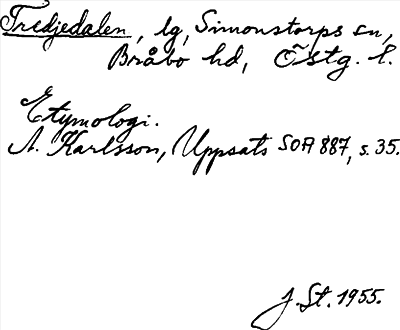 Tredjedalen, lg, Simonstorps sn,
Bråbo hd, Östg. l.
Etymologi.
A. Karlsson, Uppsats SOA 887, s. 35.
J. St. 1955.